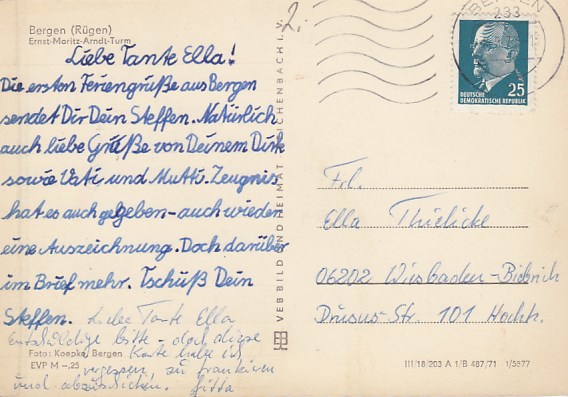 Bergen (Rügen)
Ernst-Moritz-Arndt-Turm
Liebe Tante Ella!
Die ersten Feriengrüße aus Bergen
sendet Dir Dein Steffen. Natürlich
auch liebe Grüße von Deinem Dirk
sowie Vati und Mutti. Zeugnis
hat es auch gegeben - auch wieder
eine Auszeichnung. Doch darüber
im Brief mehr. Tschüß Dein
Steffen.
Liebe Tante Ella
Entschuldige bitte - doch diese
Karte habe ich
vergessen, zu frankieren
und abzuschicken. Jitta
Foto: Koepke, Bergen
EVP M -,25
VEB BILD UND HEIMAT REICHENBACH I. V.
2.
BERGEN
233
25
DEUTSCHE
DEMOKRATISCHE REPUBLIK
Frl.
Ella Thielicke
06202 Wiesbaden-Biebrich
Drusus-Str. 101 Hochh.
III/18/203 A 1/B 487/71 1/5577